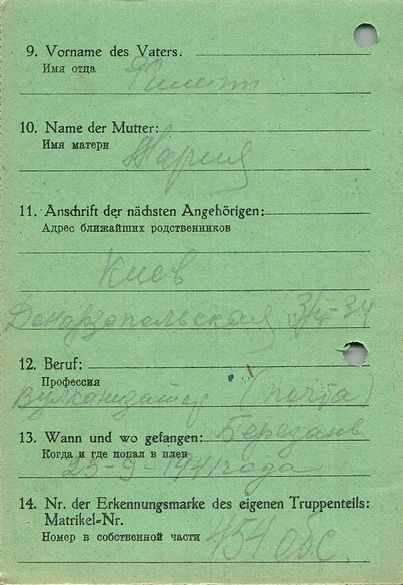 9. Vorname des Vaters.
Имя отца
Филипп
10. Name der Mutter:
Имя матери
Мария
11. Anschrift der nächsten Angehörigen:
Адрес ближайших родственников
Киев
3/4-34
12. Beruf:
Профессия
Вулканизатор (почта)
13. Wann und wo gefangen: Березань
Когда и где попал в плен
23-9-1941 года
14. Nr. der Erkennungsmarke des eigenen Truppenteils:
Matrikel-Nr.
Номер в собственной части 454 обс.